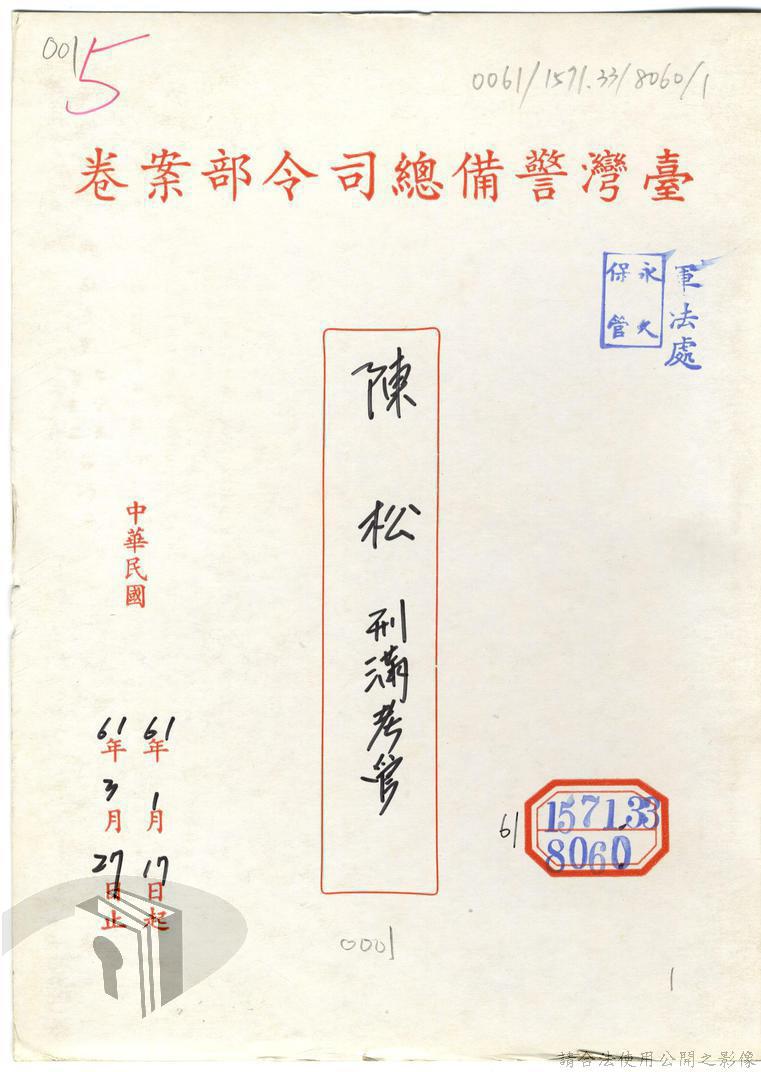 001
5
0061/1571.33/8060/1
臺灣警備總司令部案卷
軍法處
永久
保管
陳松 刑滿考管
中華民國
61年1月17日起
61年3月27日止
61
1571.33
8060
0001
1
請合法使用公開之影像